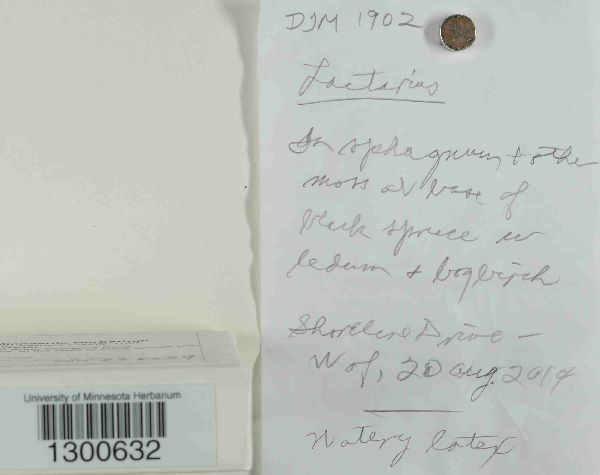 DJM 1902
Lactarius
In sphagnum + other
moss at base of
black spruce w
ledum + bogbirch
Shoreline Drive -
W of, 20 Aug. 2014
Watery latex
University of Minnesota Herbarium
1300632